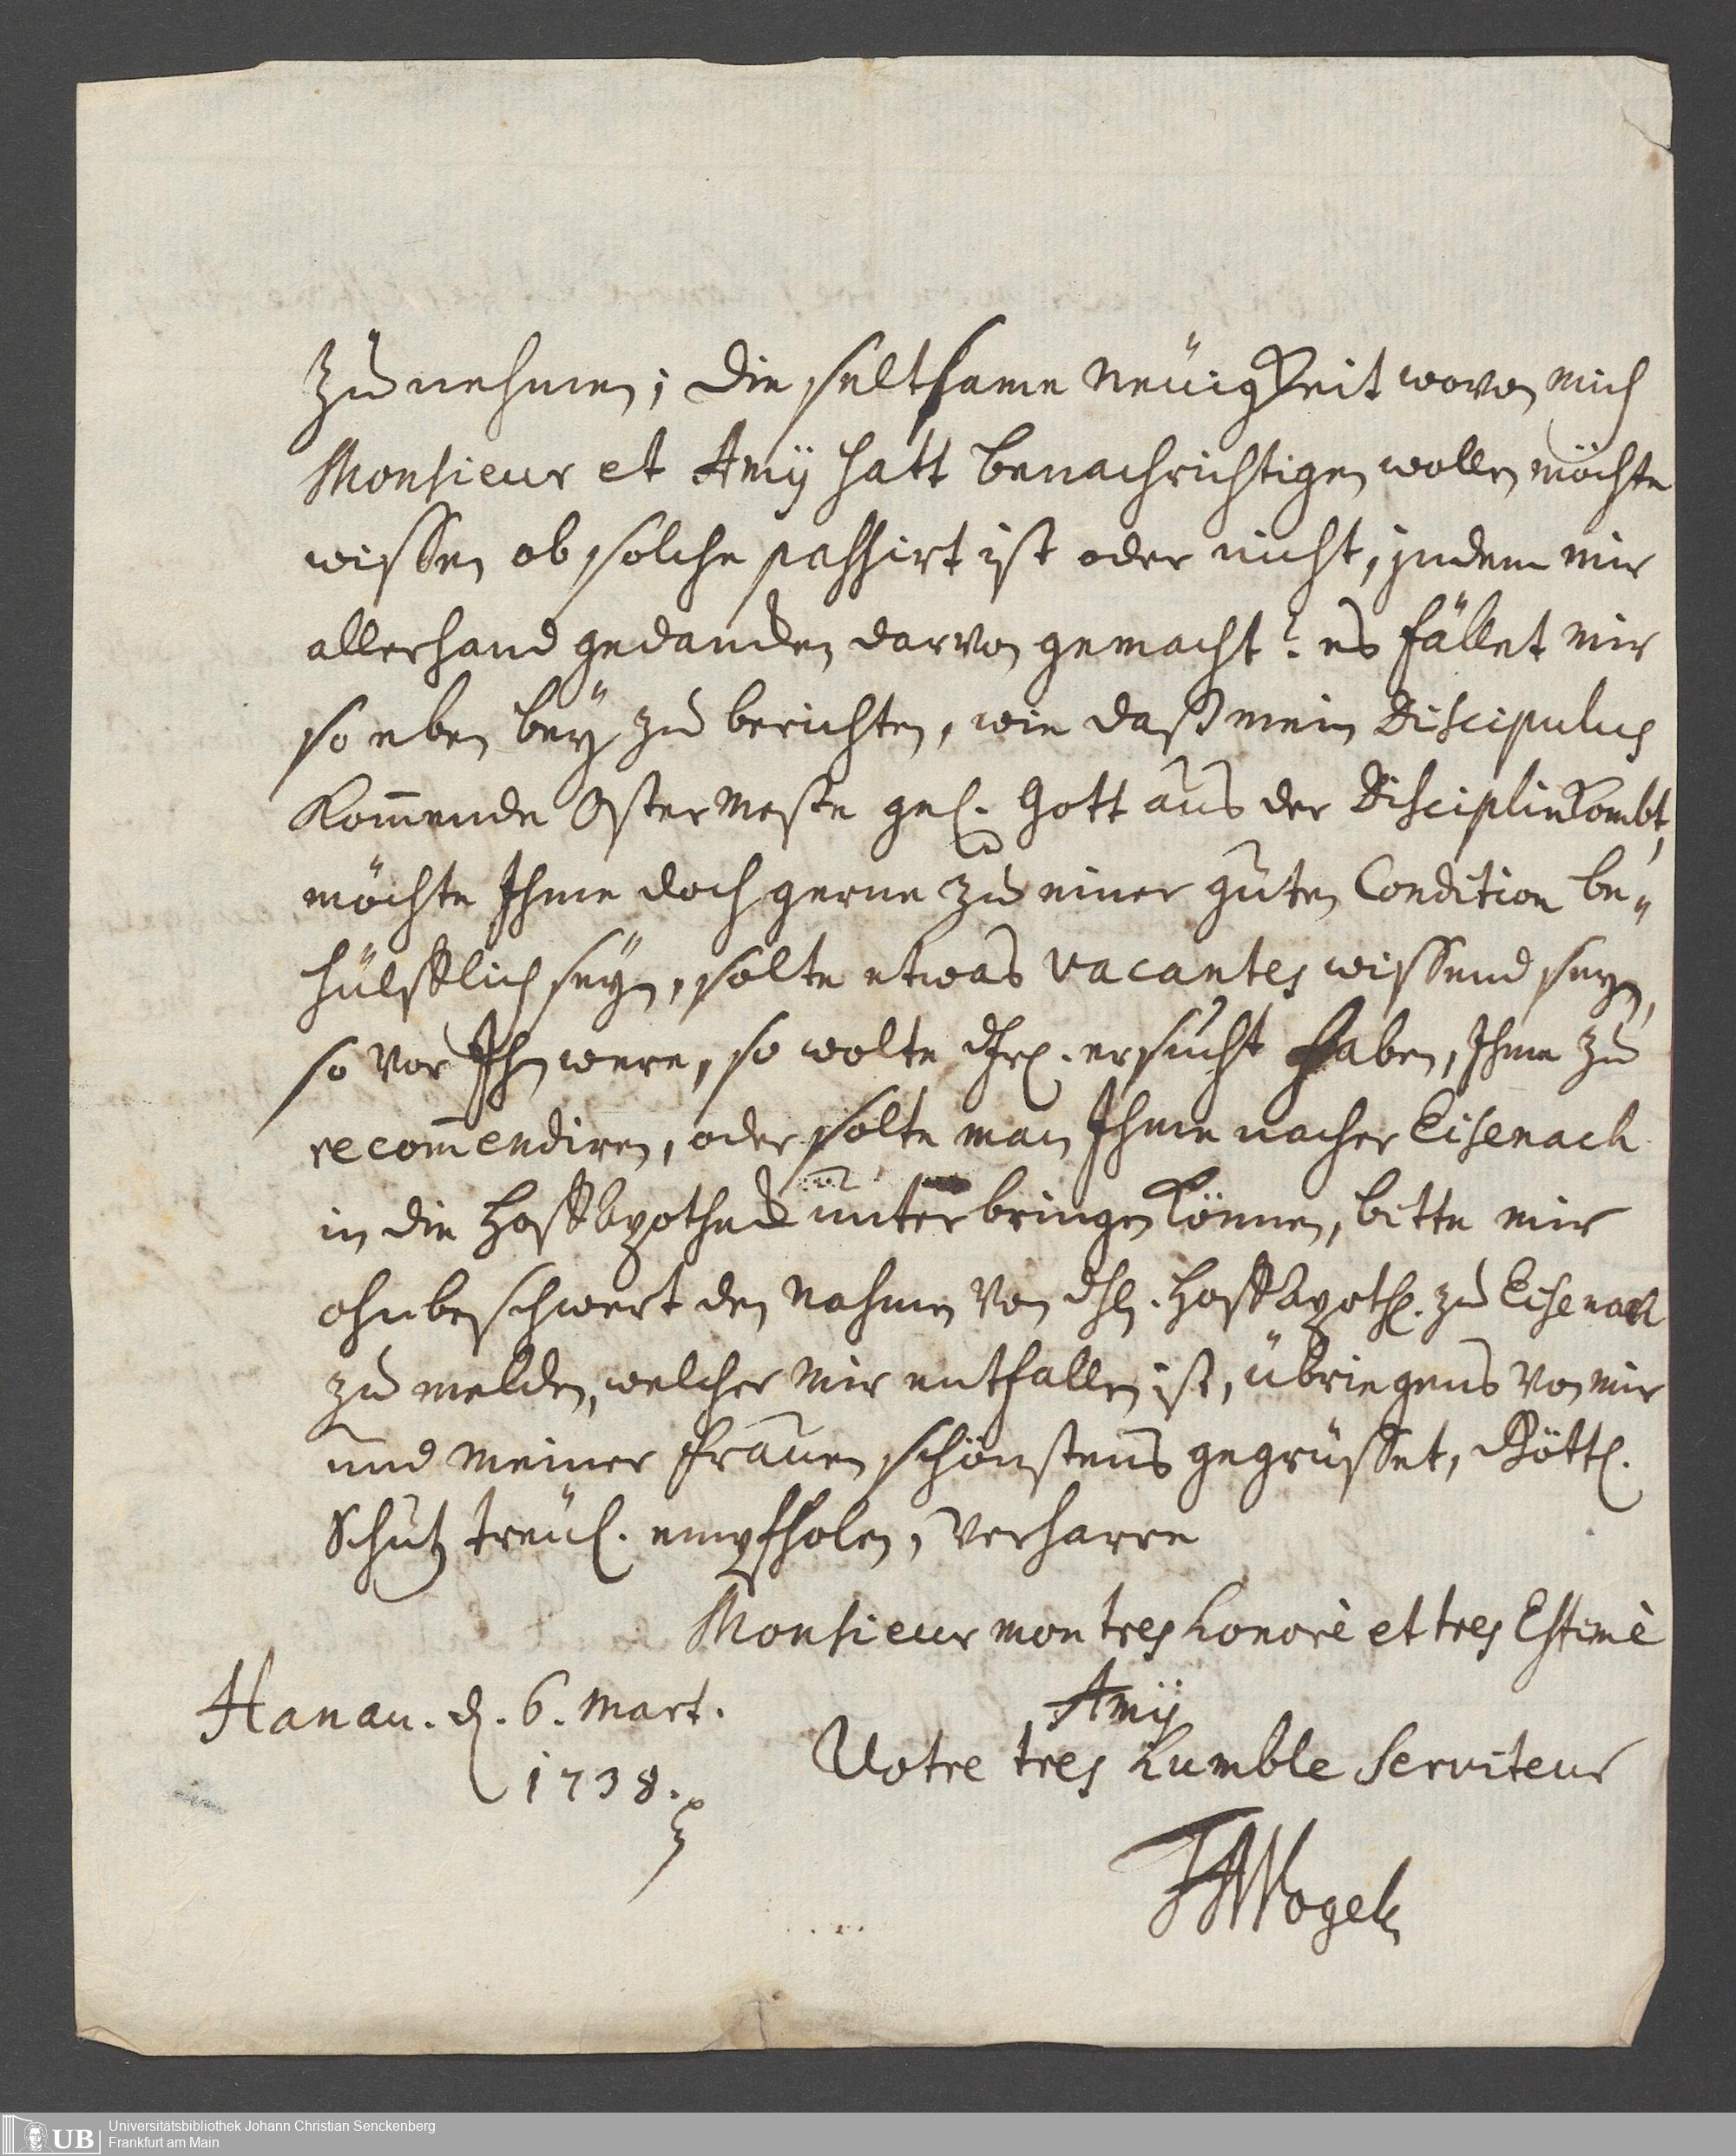 zu nehmen; die seltsame neuigkeit wovon mich
Monsieur et Amÿ hatt benachrichtigen wollen möchte
wissen ob solche passirt ist oder nicht, indem mir
allerhand gedancken darvon gemacht? es fället mir
so eben beÿ zu berichten, wie daß mein Discipulus
kom̄ende Oster Messe gel. Gott aus der Disciplin kombt,
möchte Ihme doch gerne zu einer guten Condition be„
hülfflich seÿn, solte etwas vacantes wissend seyn,
so vor Ihn were, so wolte ersucht haben, Ihme zu
recom̄endiren, oder solte man Ihme nacher Eisenach
in die HoffApotheck unterbringen können, bitte mir
ohnbeschwert den Nahmen von HoffApoth. zu Eisenach
zu melden, welcher mir entfallen ist, übriegens von mir
und meiner frauen schönstens gegrüsset, Göttl.
Schutz treul. empfholen, verharre
Monsieur mon tres honorè et tres Estimè
Amÿ
Hanau. d. 6. Mart.
1738.
Votre tres humble serviteur
Vogel
Universitätsbibliothek Johann Christian Senckenberg
Frankfurt am Main
UB